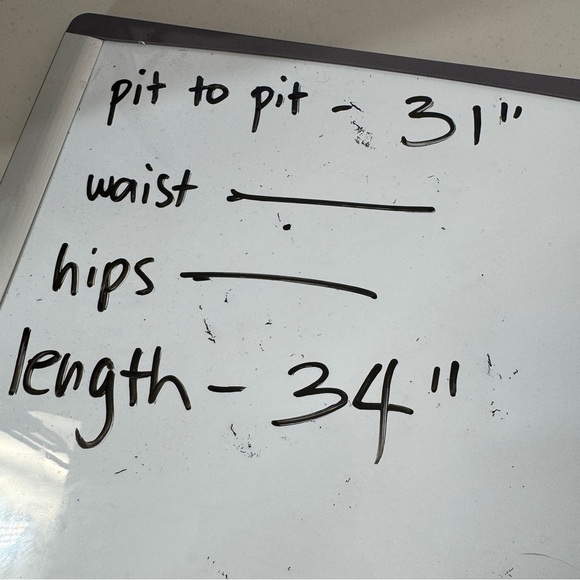 pit to pit - 31"
waist —
hips —
length - 34"